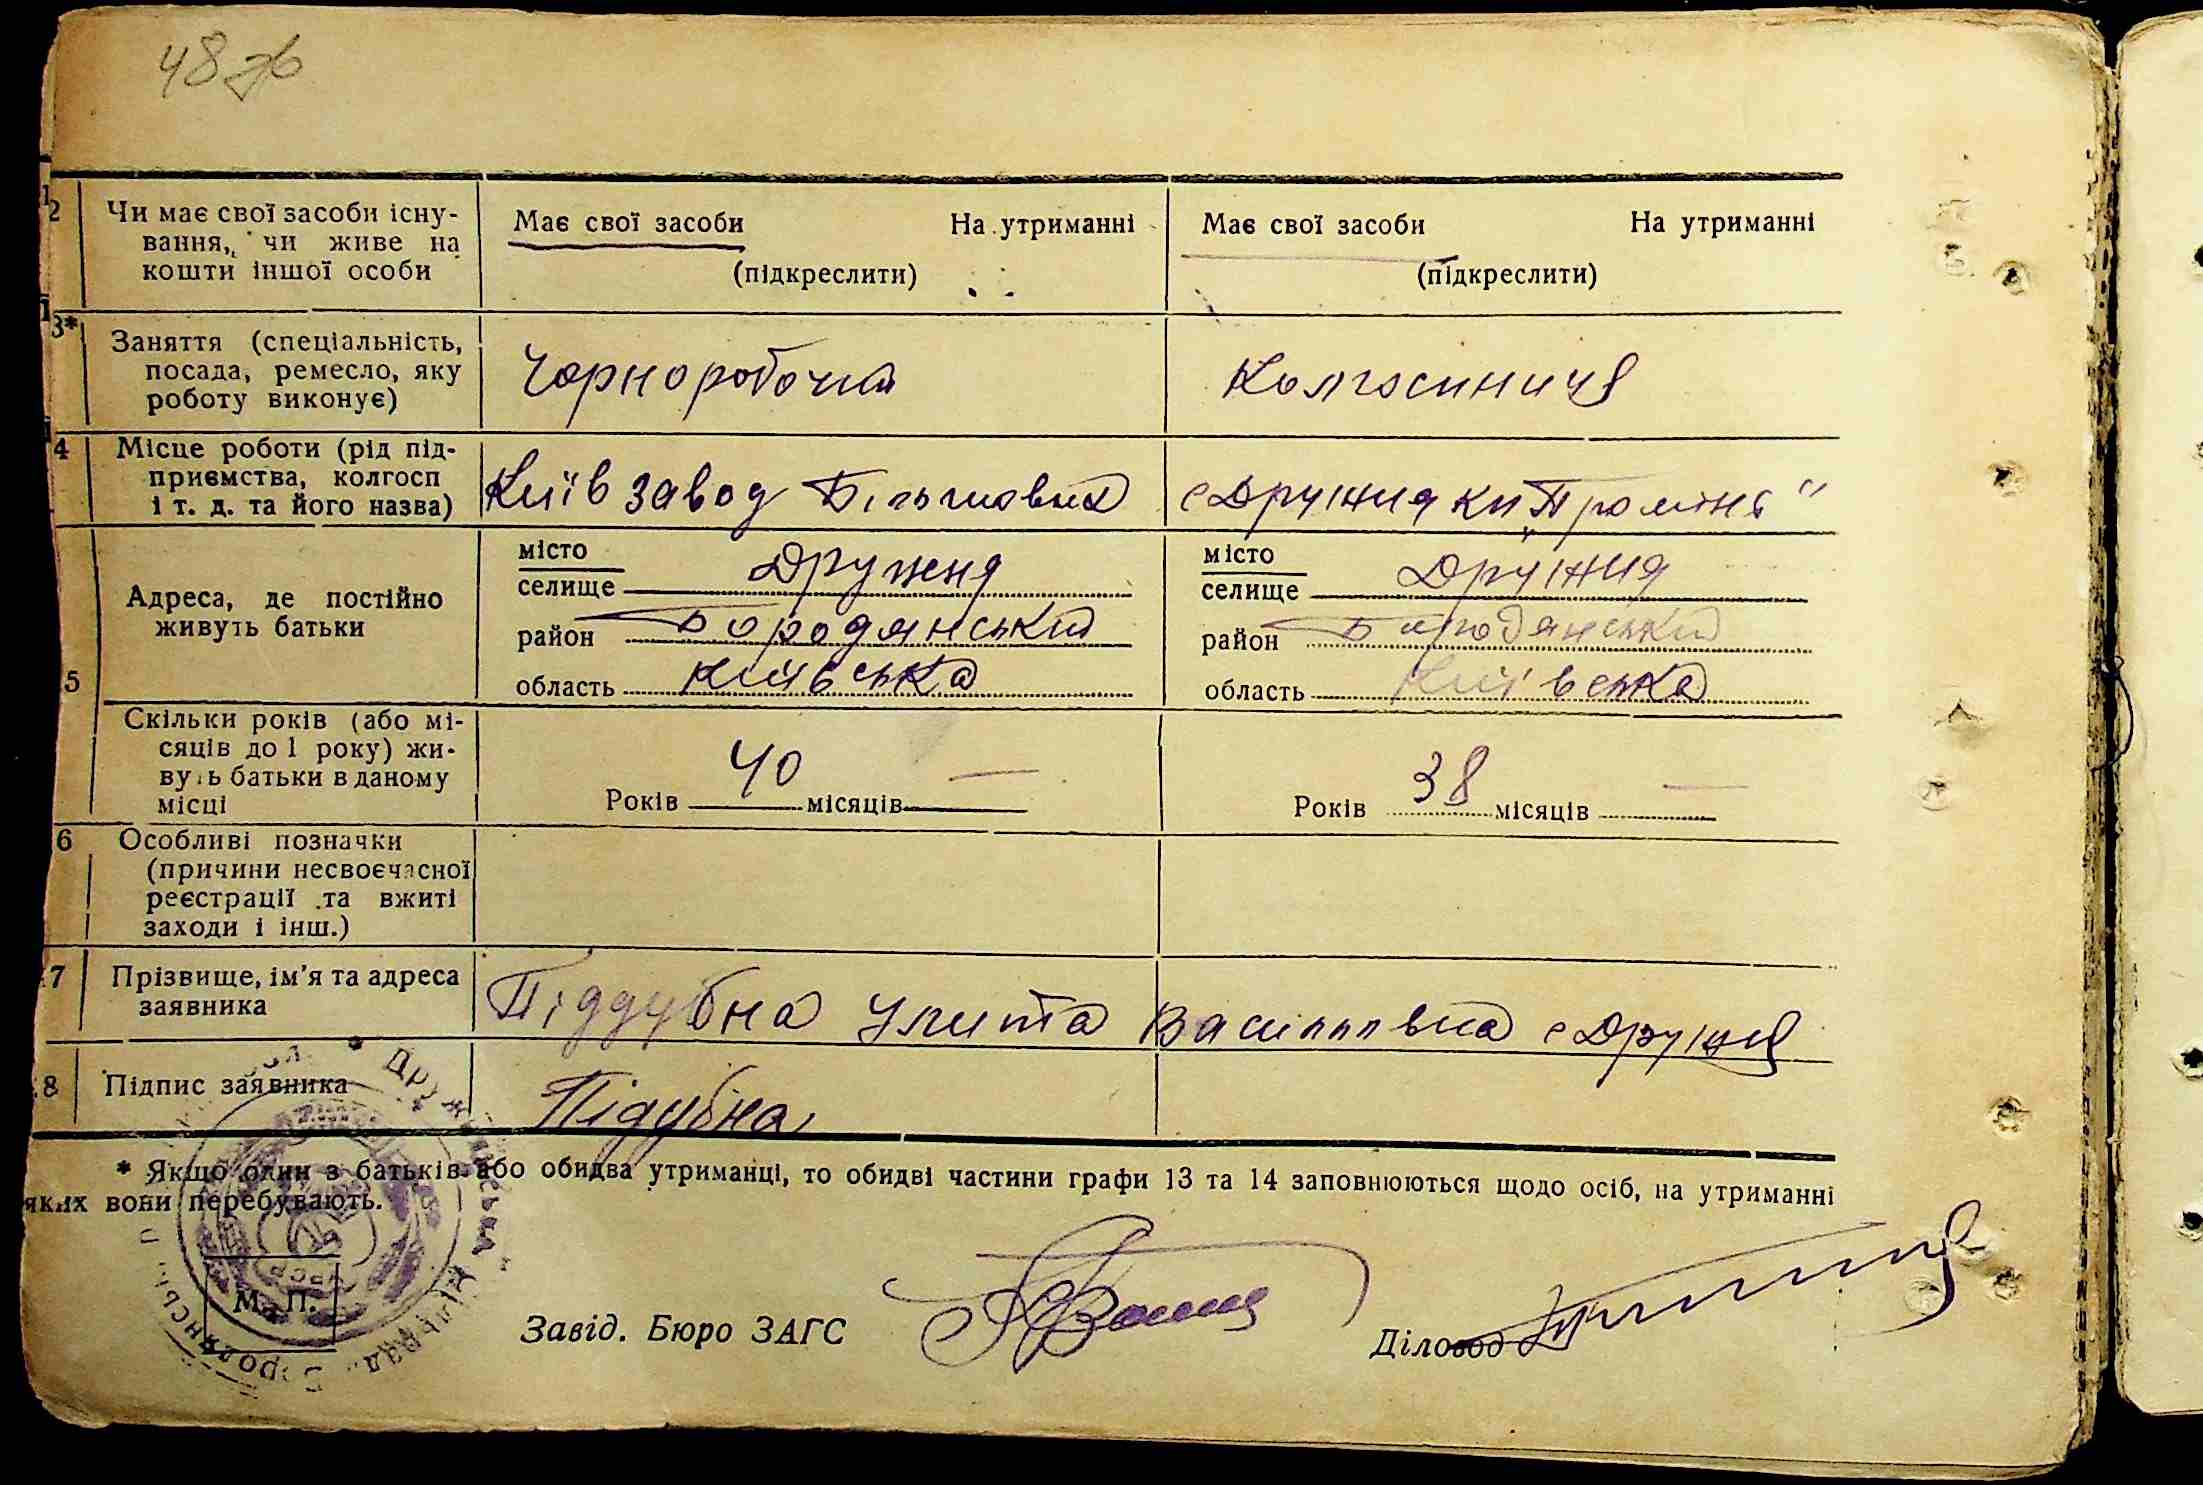 48 зв
12 Чи має свої засоби існу-
вання, чи живе на
кошти іншої особи
Має свої засоби На утриманні
(підкреслити)
Має свої засоби На утриманні
(підкреслити)
13* Заняття (спеціальність,
посада, ремесло, яку
роботу виконує)
Чорноробочий
Колгоспниця
14 Місце роботи (рід під-
приємства, колгосп
і т. д. та його назва)
Київ завод Більшовик
с Дружня к-п "Промінь"
15 Адреса, де постійно
живуть батьки
місто
селище Дружня
район Бородянський
область Київська
місто
селище Дружня
район Бородянський
область Київська
Скільки років (або мі-
сяців до 1 року) жи-
вуть батьки в даному
місці
Років 40 місяців —
Років 38 місяців —
16 Особливі позначки
(причини несвоєчасної
реєстрації та вжиті
заходи і інш.)
17 Прізвище, ім'я та адреса
заявника
Піддубна Улита Васильвна с Дружня
18 Підпис заявника
Підубна
* Якщо один з батьків або обидва утриманці, то обидві частини графи 13 та 14 заповнюються щодо осіб, на утриманні
яких вони перебувають.
М. П.
Завід. Бюро ЗАГС
Діловод